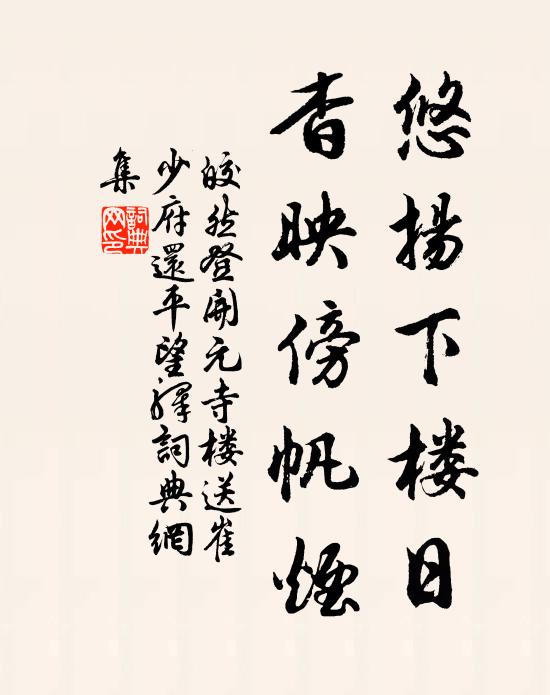 悠揚下楼日
杳映傍帆煙
皎然登開元寺楼送崔
少府還平望驛詞典網
集
詞典
网印